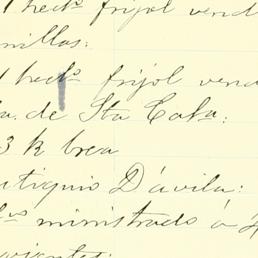 1 hect. frijol vend
nillas:
1 hect. frijol vend
a. de Sta Cata:
3 k brea
utiquio Dávila:
ministrado á